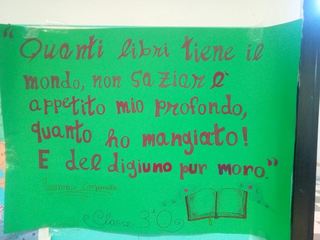 "Quanti libri tiene il
mondo, non saziar l'
appetito mio profondo,
quanto ho mangiato!
E del digiuno pur moro."
Classe 3°